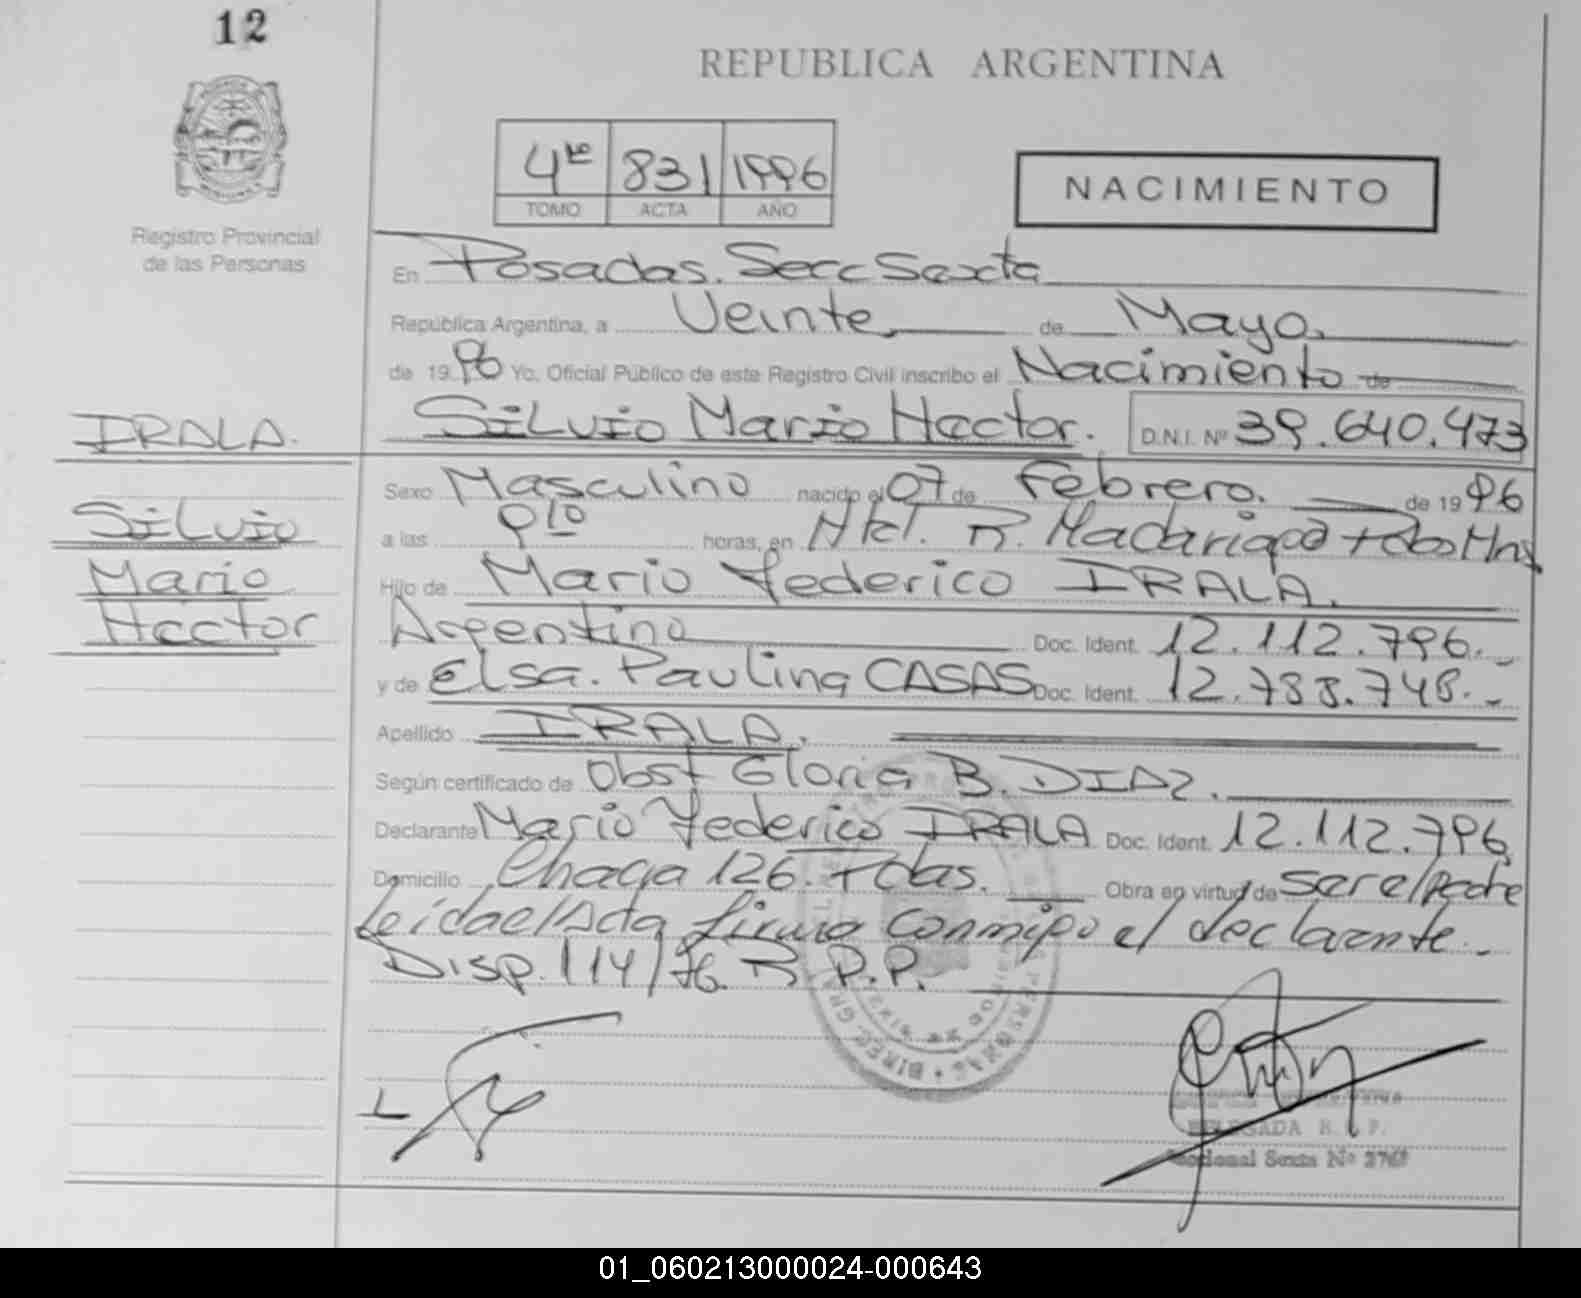 12
REPUBLICA ARGENTINA
4to 831 1996
TOMO ACTA AÑO
NACIMIENTO
Registro Provincial
de las Personas
En Posadas. Secc Sexta
República Argentina, a Veinte de Mayo.
de 19 96 Yo, Oficial Público de este Registro Civil inscribo el Nacimiento de
IRALA.
Silvio Mario Hector. D.N.I. Nº 39.640.473
Sexo Masculino nacido el 07 de Febrero. de 19 96
Silvio
a las 9 10 horas, en Htal. R. Madariaga
Mario
Hijo de Mario Federico IRALA.
Hector
Argentina Doc. Ident. 12.112.796.
y de Elsa. Paulina CASAS Doc. Ident. 12.783.748.
Apellido IRALA.
Según certificado de Obst Gloria B. DIAZ.
Declarante Mario Federico IRALA Doc. Ident. 12.112.796
Domicilio Chaca 126. Pdas. Obra en virtud de ser el Padre
Leida el Acta firma conmigo el declarante.
Disp. 114/76. R. P.P.
DELEGADA R. P.
Seccional Sexta Nº
01_060213000024-000643